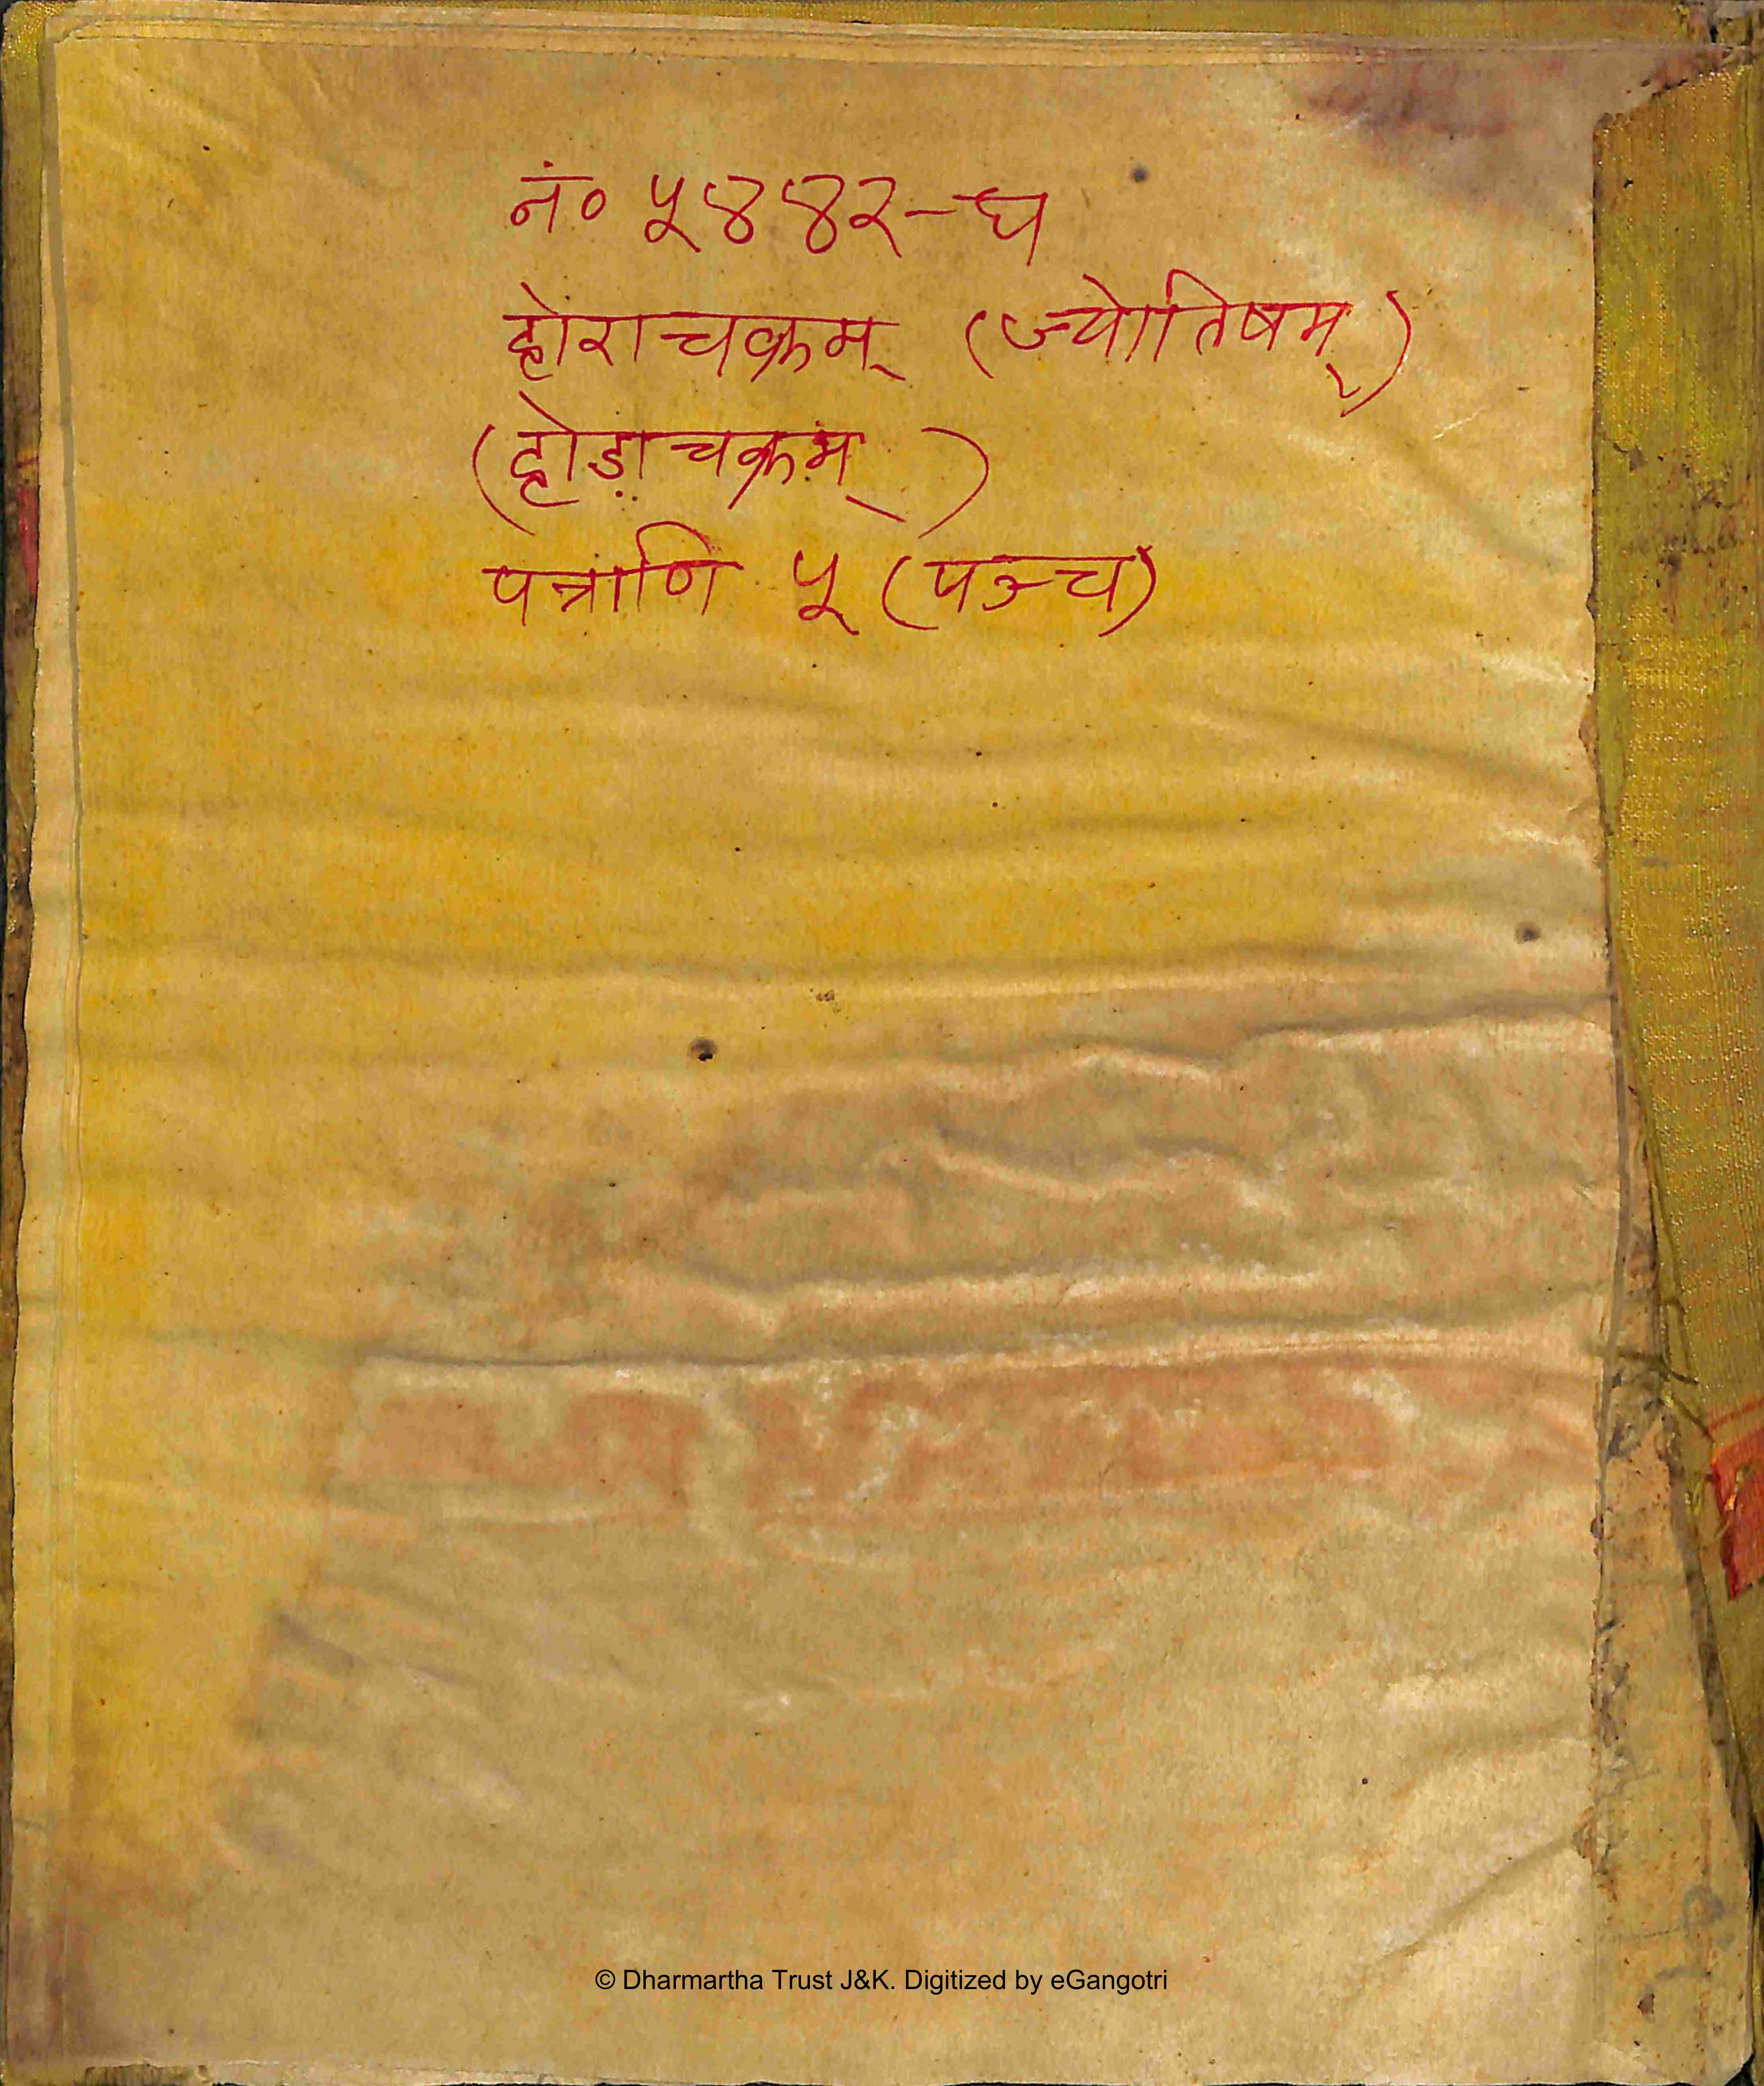 नं० ५४४२-घ
होराचक्रम् (ज्योतिषम्)
(होड़ाचक्रम्)
पत्राणि ५ (पञ्च)
© Dharmartha Trust J&K. Digitized by eGangotri